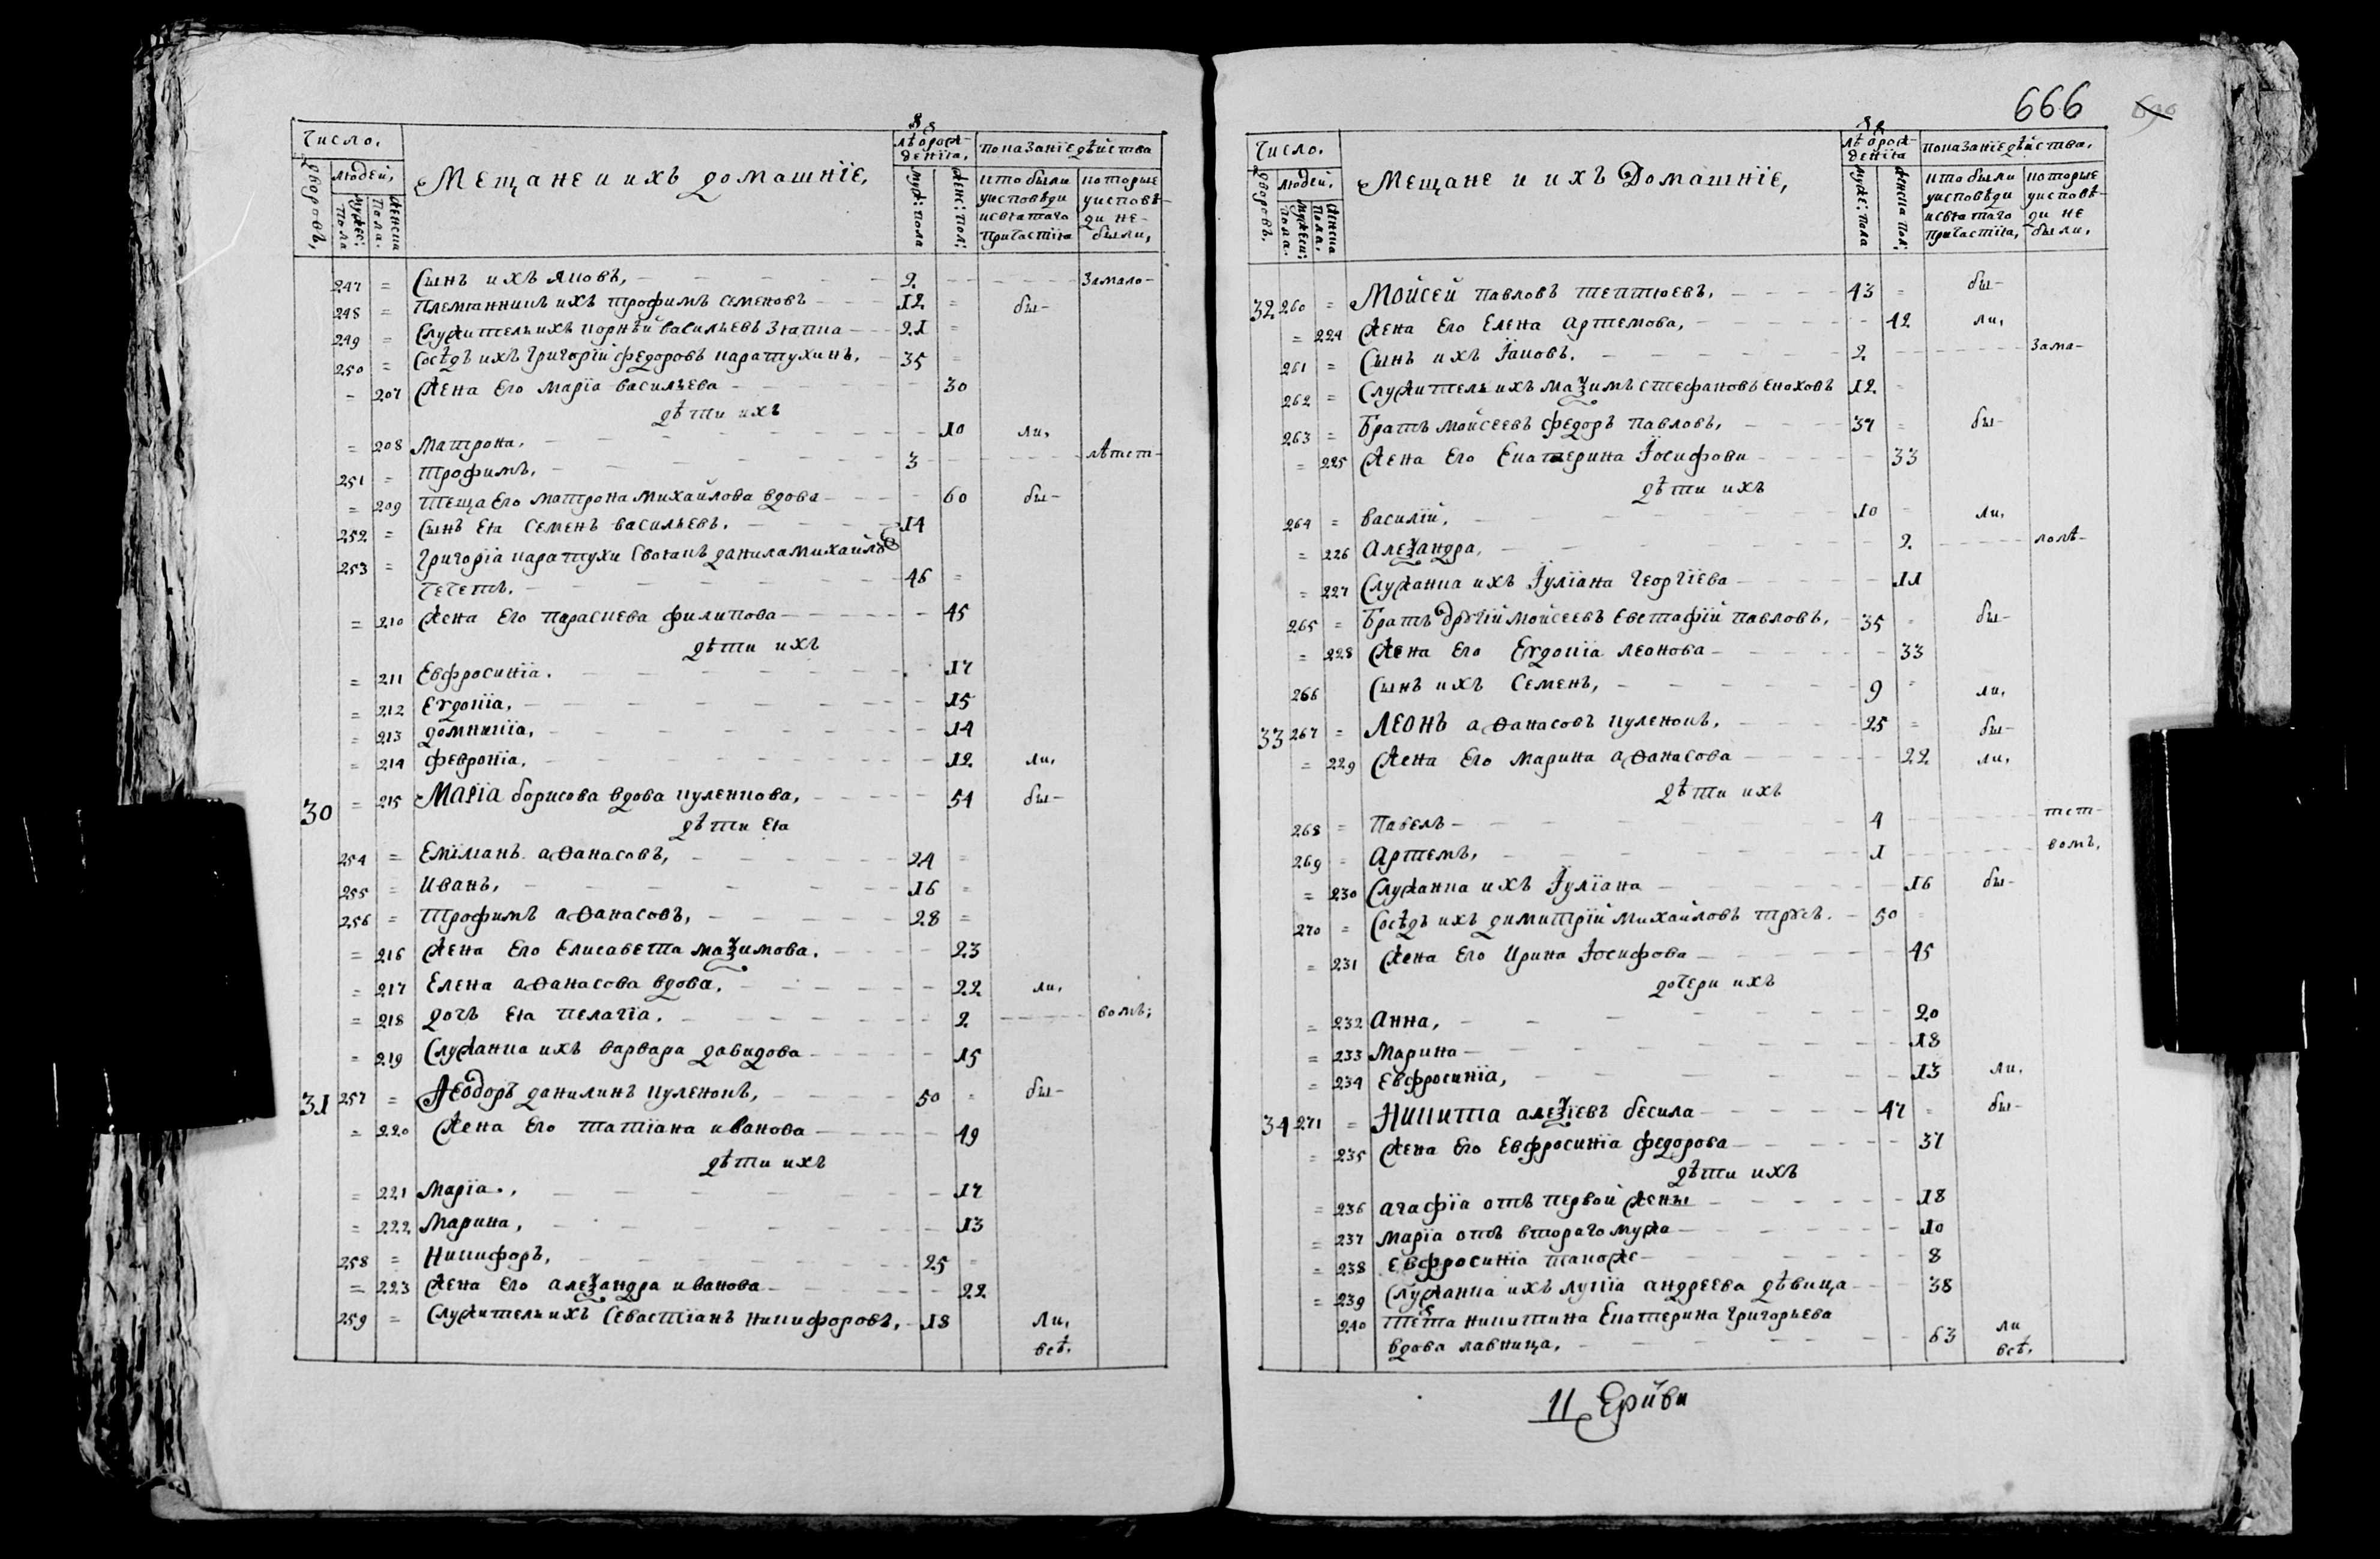 Число.
Дворовъ,
Людей,
мужес: пола
женска пола.
Мещане и ихъ домашніе,
Лѣ ѡрож-
денїѧ,
муж: пола
женс: пол:
показанїе дѣйства
кто были
у исповѣди
и свѧтаго
причастїѧ
которые
у исповѣ-
ди не-
были,
247 = Сынъ ихъ яковъ, 2 замало-
248 = Племѧнникъ ихъ трофимъ семеновъ 12 = бы-
249 = Служитель ихъ корнѣй васильевъ знапка 21 =
250 = Сосѣдъ ихъ григорїй федоровъ каратухинъ, 35 =
= 207 Жена его марїа васильева 30
дѣти ихъ
= 208 Матрона, 10 ли,
251 = трофимъ, 3 лѣтст-
= 209 теща его матрона михайлова вдова 60 бы-
252 = сынъ еѧ семенъ васильевъ, 14
253 = григорїа каратухи своѧкъ данила михайловъ
чечетъ, 46 =
= 210 Жена его параскева филипова 45
дѣти ихъ
= 211 Евфросинїа, 17
= 212 Еѵдокїа, 15
= 213 домникїа, 14
= 214 февронїа, 12 ли,
30 = 215 Марїа борисова вдова куленкова, 54 бы-
дѣти еѧ
254 = Емїлїанъ аѳанасовъ, 24 =
255 = Иванъ, 16 =
256 = трофимъ аѳанасовъ, 28 =
= 216 Жена его елисавета маѯимова, 23
= 217 Елена аѳанасова вдова, 22 ли,
= 218 дочь еѧ пелагїа, 2 вомъ;
= 219 Служанка ихъ варвара давидова 15
31 257 = Ѳеодоръ данилинъ куленокъ, 50 = бы-
= 220 Жена его татїана иванова 49
дѣти ихъ
= 221 Марїа, 17
= 222 Марина, 13
258 = Никифоръ, 25 =
= 223 Жена его алеѯандра иванова 22
259 = Служитель ихъ севастїанъ никифоровъ, 18 ли,
всѣ.
666
Число.
Дворовъ.
Людей,
мужеск: пола.
женска пола.
Мещане и ихъ Домашніе,
Лѣ ѡрож-
денїѧ
муже: пола
женска пол:
показанїе дѣйства.
кто были
у исповѣди
и свѧтаго
причастїѧ,
которые
у исповѣ-
ди не
были,
32 260 = Мойсей павловъ тептюевъ, 43 = бы-
= 224 Жена его елена артемова, 42 ли,
261 = Сынъ ихъ їаковъ. 2 зама-
262 = Служитель ихъ маѯимъ стефановъ еноховъ 12 =
263 = Братъ мойсеевъ федоръ павловъ, 37 = бы-
= 225 Жена его екатерина їосифова 33
дѣти ихъ
264 = василїй, 10 = ли,
= 226 алеѯандра, 2 лолѣ-
= 227 Служанка ихъ їулїана георгїева 11
265 = Братъ другїй мойсеевъ евстафїй павловъ, 35 = бы-
= 228 Жена его еѵдокїа леонова 33
266 Сынъ ихъ семенъ, 9 = ли,
33 267 = Леонъ аѳанасовъ куленокъ, 25 = бы-
= 229 Жена его марина аѳанасова 22 ли,
дѣти ихъ
268 = павелъ 4 тст-
269 = артемъ, 1 вомъ,
= 230 Служанка ихъ їулїана 16 бы-
270 = Сосѣдъ ихъ димитрїй михайловъ трусъ. 50
= 231 Жена его ирина їосифова 45
дочери ихъ
= 232 анна, 20
= 233 Марина 18
= 234 евфросинїа, 13 ли.
34 271 = Никита алеѯїевъ бесила 47 = бы-
= 235 Жена его евфросинїа федорова 37
дѣти ихъ
= 236 агафїа отъ первой жены 18
= 237 марїа отъ втораго мужа 10
= 238 евфросинїа такожс 8
= 239 Служанка ихъ лукїа андреева дѣвица 38
240 тета никитина екатерина григорьева
вдова лавница, 63 ли
всѣ.
11 Ерйви